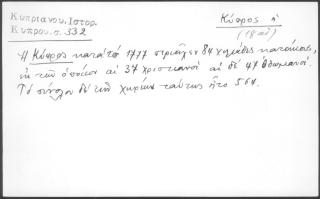 Κυπριανού, Ιστορ.
Κύπρου σ. 332
Κύπρος ἡ
(18 αἰ)
Ἡ Κύπρος κατά τό 1777 περιεῖχεν 84 χιλιάδας κατοίκους,
ἐκ τῶν ὁποίων αἱ 37 χριστιανοί αἱ δέ 47 Ὀθωμανοί.
Τό σύνολον δέ τῶν χωρίων ταύτης ἦτο 564.